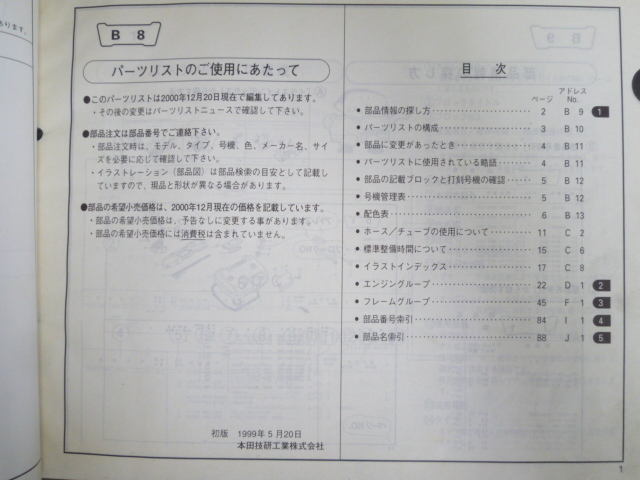 B 8
パーツリストのご使用にあたって
●このパーツリストは2000年12月20日現在で編集してあります。
・その後の変更はパーツリストニュースで確認して下さい。
●部品注文は部品番号でご連絡下さい。
・部品注文時は、モデル、タイプ、号機、色、メーカー名、サイ
ズを必要に応じて確認して下さい。
・イラストレーション（部品図）は部品検索の目安として記載し
ていますので、現品と形状が異なる場合があります。
●部品の希望小売価格は、2000年12月現在の価格を記載しています。
・部品の希望小売価格は、予告なしに変更する事があります。
・部品の希望小売価格には消費税は含まれていません。
初版 1999年5月20日
本田技研工業株式会社
目 次
ページ アドレスNo.
● 部品情報の探し方 2 B 9 1
● パーツリストの構成 3 B 10
● 部品に変更があったとき 4 B 11
● パーツリストに使用されている略語 4 B 11
● 部品の記載ブロックと打刻号機の確認 5 B 12
● 号機管理表 5 B 12
● 配色表 6 B 13
● ホース／チューブの使用について 11 C 2
● 標準整備時間について 15 C 6
● イラストインデックス 17 C 8
● エンジングループ 22 D 1 2
● フレームグループ 45 F 1 3
● 部品番号索引 84 I 1 4
● 部品名索引 88 J 1 5
1